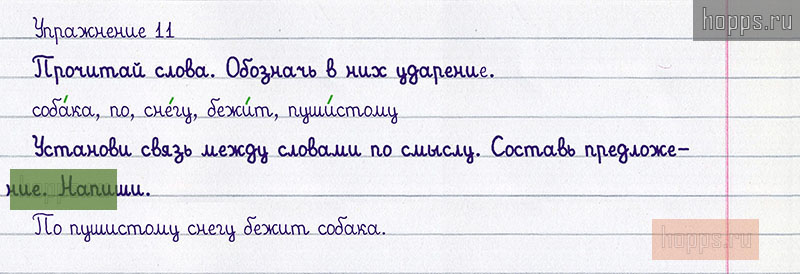 hopps.ru
Упражнение 11
Прочитай слова. Обозначь в них ударение.
соба́ка, по, сне́гу, бежи́т, пуши́стому
Установи связь между словами по смыслу. Составь предложе-
ние. Напиши.
По пушистому снегу бежит собака.
hopps.ru